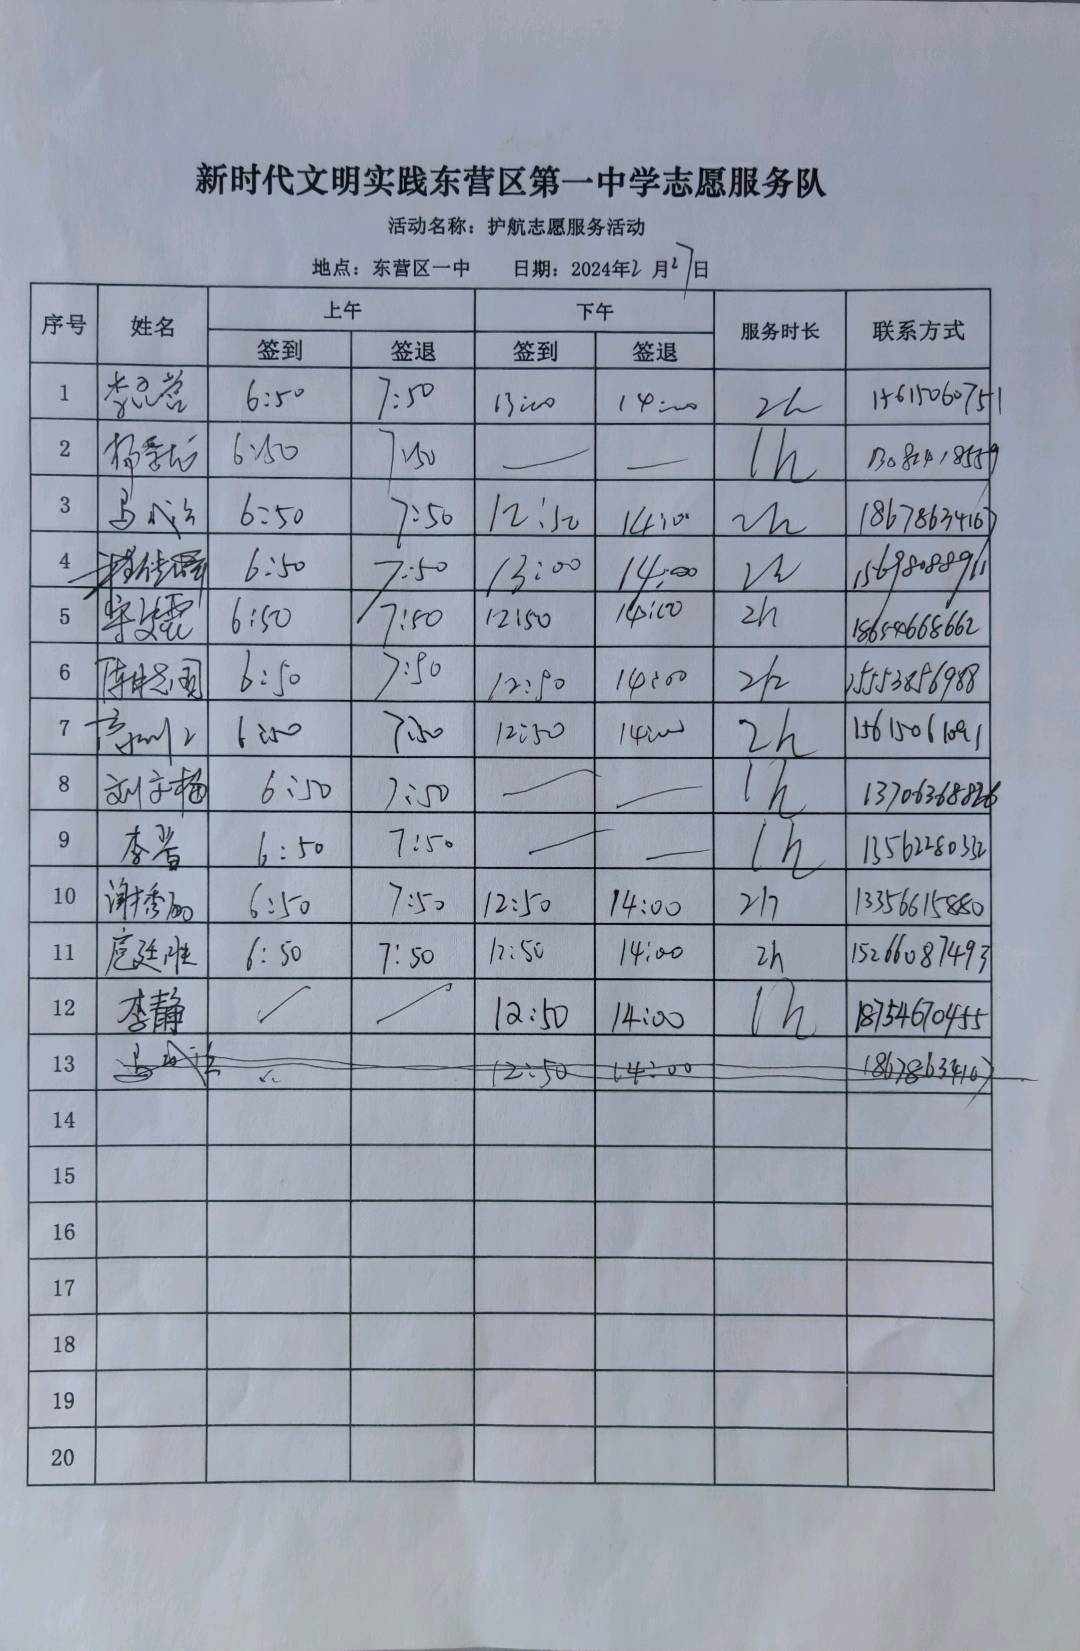 新时代文明实践东营区第一中学志愿服务队
活动名称：护航志愿服务活动
地点：东营区一中 日期：2024年2月27日
序号 姓名 上午 下午 服务时长 联系方式
签到 签退 签到 签退
1 6:50 7:50 13:00 14:00 2h 15615060751
2 6:50 7:50 — — 1h
3 6:50 7:50 12:50 14:00 2h 18678634167
4 6:50 7:50 13:00 14:00 2h 15698088911
5 6:50 7:50 12:50 14:00 2h 18654668662
6 6:50 7:50 12:50 14:00 2h 15553856988
7 6:50 7:50 12:50 14:00 2h 15615061091
8 刘文梅 6:50 7:50 — — 1h 13706368826
9 李晋 6:50 7:50 — — 1h 13562280332
10 6:50 7:50 12:50 14:00 2h 13356615880
11 扈廷胜 6:50 7:50 12:50 14:00 2h 15266087493
12 李静 12:50 14:00 1h 18754670455
13 12:50 14:00 18678634167
14
15
16
17
18
19
20